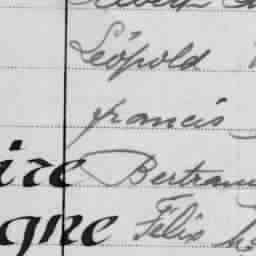 Léopold
francis
ire Bertrand
gne Félix